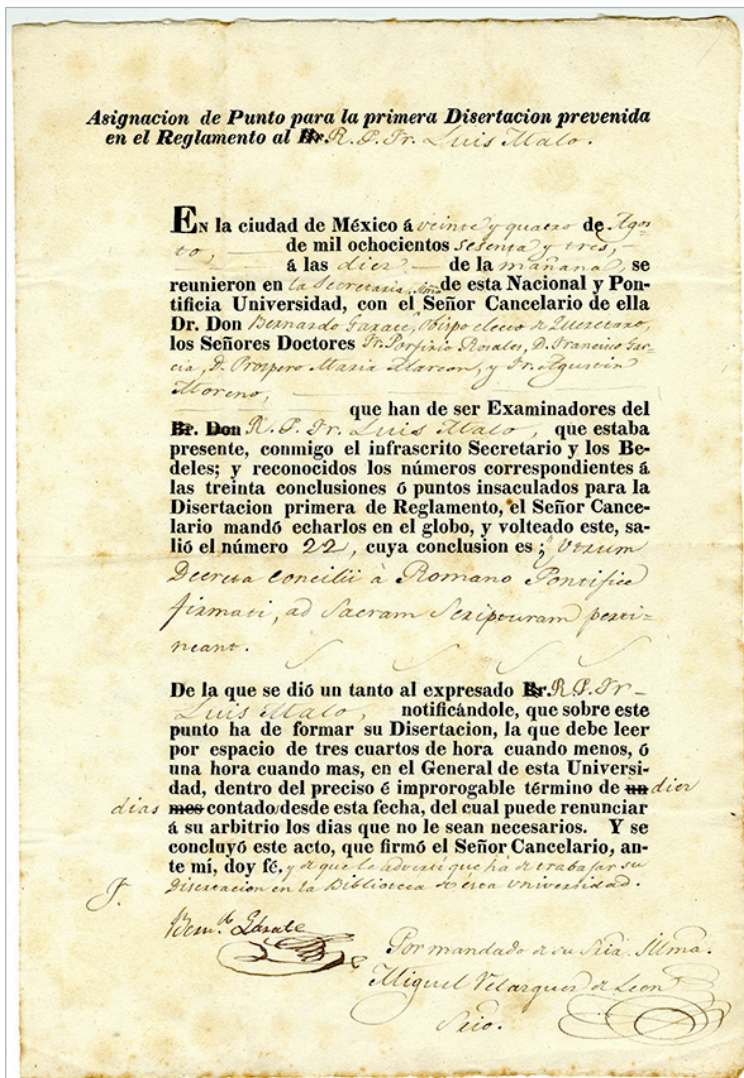 Asignacion de Punto para la primera Disertacion prevenida
en el Reglamento al Br. R. P. Fr. Luis Malo.
EN la ciudad de México á veinte y quatro de Agos-
to, de mil ochocientos sesenta y tres,
á las diez de la mañana, se
reunieron en la Secretaria de esta Nacional y Pon-
tificia Universidad, con el Señor Cancelario de ella
Dr. Don Bernardo Garate, Obispo electo de Queretaro,
los Señores Doctores Fr. Porfirio Rosales, D. Francisco Gar-
cia, D. Prospero Maria Alarcon, y Fr. Agustin
Moreno,
que han de ser Examinadores del
Br. Don R. P. Fr. Luis Malo, que estaba
presente, conmigo el infrascrito Secretario y los Be-
deles; y reconocidos los números correspondientes á
las treinta conclusiones ó puntos insaculados para la
Disertacion primera de Reglamento, el Señor Cance-
lario mandó echarlos en el globo, y volteado este, sa-
lió el número 22, cuya conclusion es; Utrum
Decreta Concilii à Romano Pontifice
firmati, ad Sacram Scripturam perti-
neant.
De la que se dió un tanto al expresado Br. R. P. Fr.
Luis Malo, notificándole, que sobre este
punto ha de formar su Disertacion, la que debe leer
por espacio de tres cuartos de hora cuando menos, ó
una hora cuando mas, en el General de esta Universi-
dad, dentro del preciso é improrogable término de un diez
dias mes contado desde esta fecha, del cual puede renunciar
á su arbitrio los dias que no le sean necesarios. Y se
concluyó este acto, que firmó el Señor Cancelario, an-
te mí, doy fé, y de que le advertí que há de trabajar su
Disertacion en la Biblioteca de esta Universidad.
Bern.do Gárate
Por mandado de su Sria. Illma.
Miguel Velazquez de Leon
Srio.